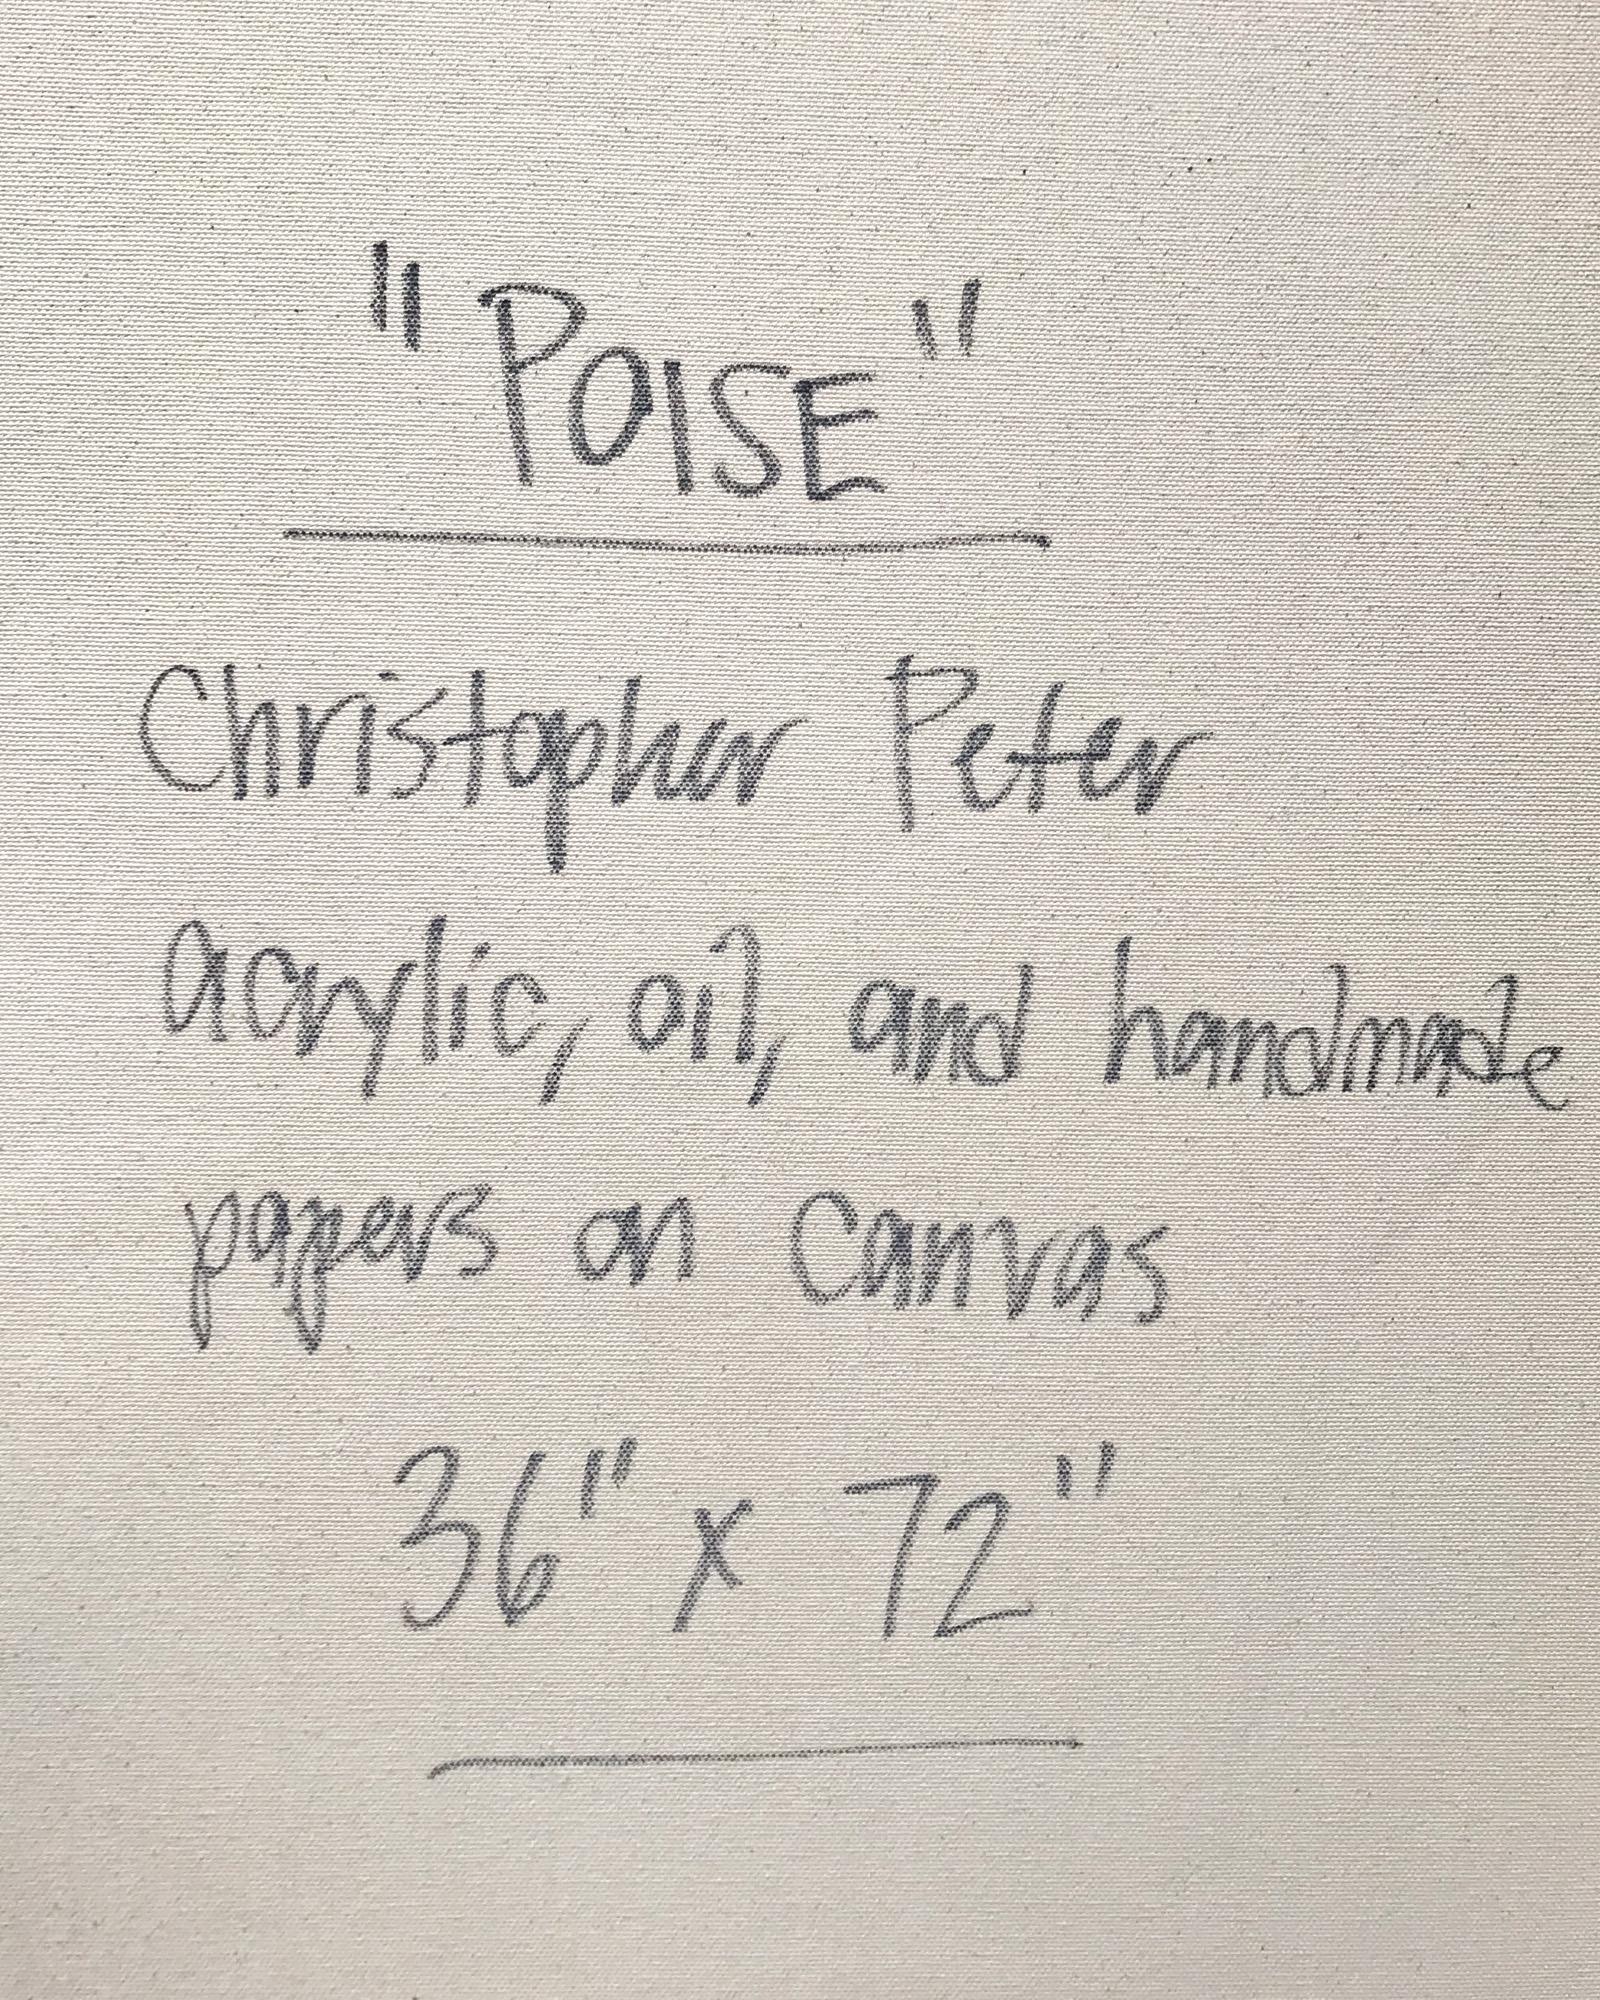 "POISE"
Christopher Peter
acrylic, oil, and handmade
papers on canvas
36" x 72"